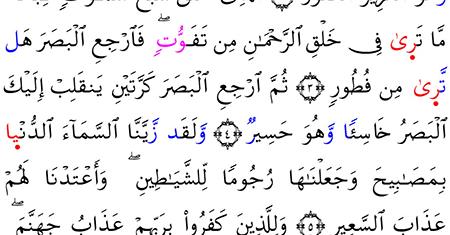 مَّا تَرٜىٰ فِى خَلْقِ اِ۬لرَّحْمَٰنِ مِن تَفَٰوُتࣲۖ فَارْجِعِ اِ۬لْبَصَرَ هَل
تَّرٜىٰ مِن فُطُورࣲۖ ۝٣ ثُمَّ اَ۪رْجِعِ اِ۬لْبَصَرَ كَرَّتَيْنِ يَنقَلِبِ اِلَيْكَ
اَ۬لْبَصَرُ خَاسِئࣰا وَهُوَ حَسِيرࣱۖ ۝٤ وَلَقَد زَّيَّنَّا اَ۬لسَّمَآءَ اَ۬لدُّنْيٜا
بِمَصَٰبِيحَ وَجَعَلْنَٰهَا رُجُومࣰا لِّلشَّيَٰطِينِۖ وَأَعْتَدْنَا لَهُمْ
عَذَابَ اَ۬لسَّعِيرِۖ ۝٥ وَلِلَّذِينَ كَفَرُوا۟ بِرَبِّهِمْ عَذَابُ جَهَنَّمَۖ